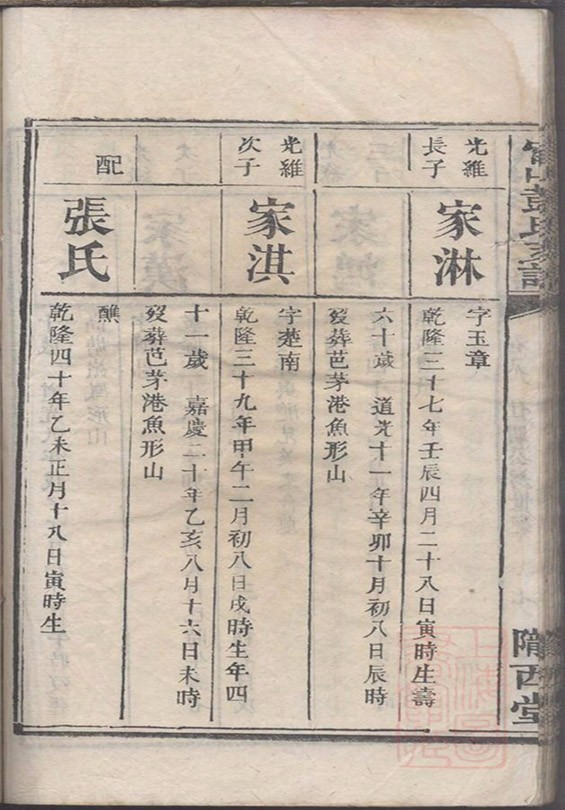 富山彭氏家譜
隴西堂
光維
長子
家淋
字玉章
乾隆三十七年壬辰四月二十八日寅時生壽
六十歲 道光十一年辛卯十月初八日辰時
歿葬芭茅港魚形山
光維
次子
家淇
字楚南
乾隆三十九年甲午二月初八日戌時生年四
十一歲 嘉慶二十年乙亥八月十六日未時
歿葬芭茅港魚形山
配
張氏
醮
乾隆四十年乙未正月十八日寅時生